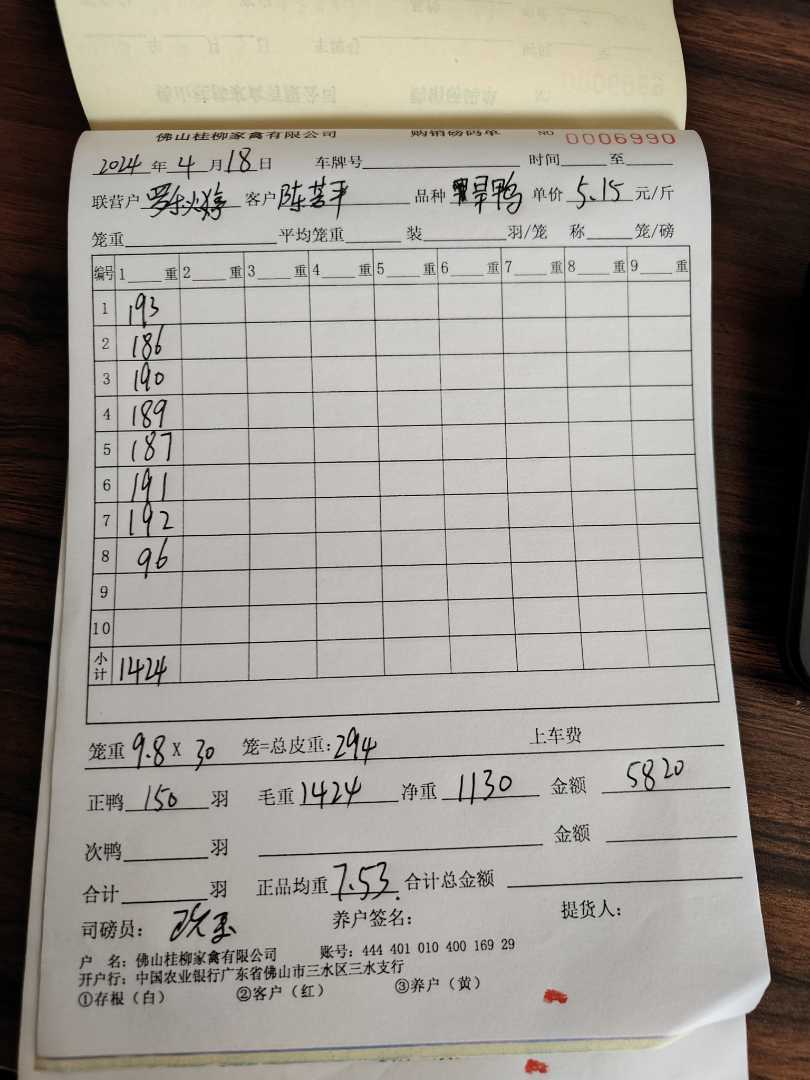 佛山桂柳家禽有限公司 购销磅码单 NO 0006990
2024 年 4 月 18 日 车牌号 时间 至
联营户 客户 陈 平 品种 旱鸭 单价 5.15 元/斤
笼重 平均笼重 装 羽/笼 称 笼/磅
编号 1 重 2 重 3 重 4 重 5 重 6 重 7 重 8 重 9 重
1 193
2 186
3 190
4 189
5 187
6 191
7 192
8 96
9
10
小计 1424
笼重 9.8 X 30 笼=总皮重: 294 上车费
正鸭 150 羽 毛重 1424 净重 1130 金额 5820
次鸭 羽 金额
合计 羽 正品均重 7.53 合计总金额
司磅员: 养户签名: 提货人:
户 名: 佛山桂柳家禽有限公司 账号: 444 401 010 400 169 29
开户行: 中国农业银行广东省佛山市三水区三水支行
①存根(白) ②客户(红) ③养户(黄)